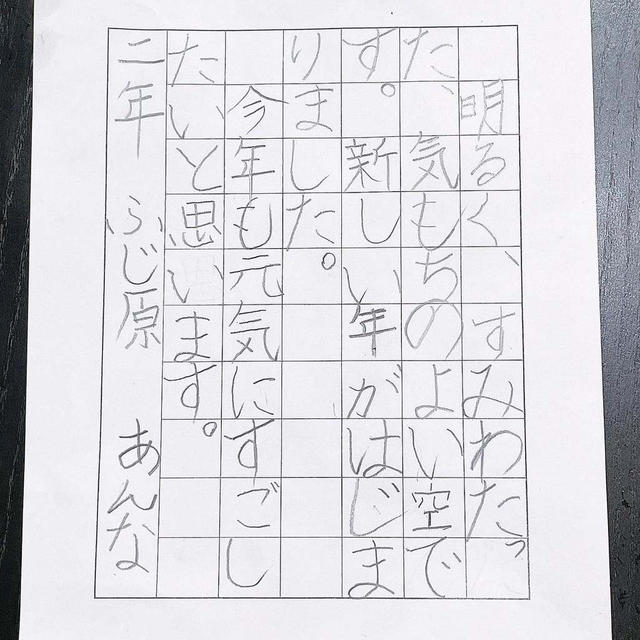 明るく、すみわたっ
た、気もちのよい空で
す。新しい年がはじま
りました。
今年も元気にすごし
たいと思います。
二年 ふじ原 あんな